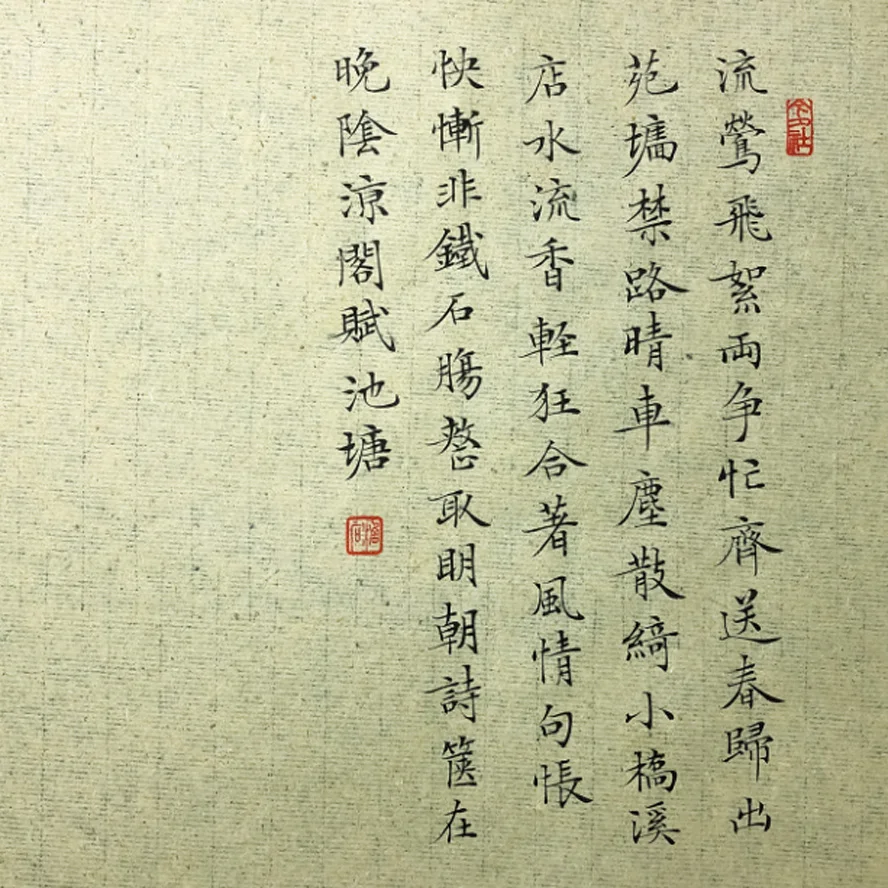 流鶯飛絮兩争忙齊送春歸出
苑墻禁路晴車塵散綺小橋溪
店水流香輕狂合著風情句悵
怏慚非鐵石腸整取明朝詩篋在
晚陰涼閣賦池塘